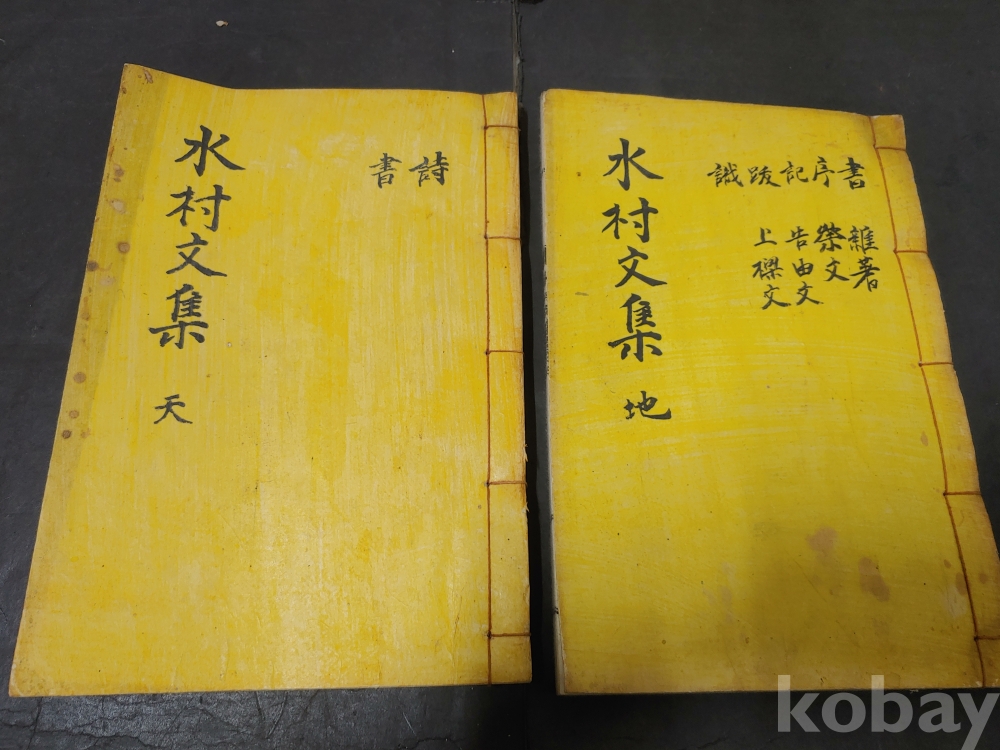 水村文集 天
詩
書
水村文集 地
書序記跋識
雜著
祭文
告由文
上樑文
kobay